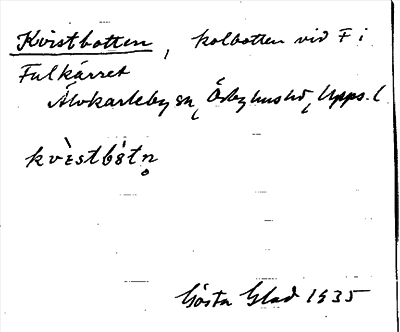 Kvistbotten, kolbotten vid F i
Fulkärret
Älvkarleby sn, Örbyhus hd, Upps. l
kvìstbò̀tn̥
Gösta Glad 1935